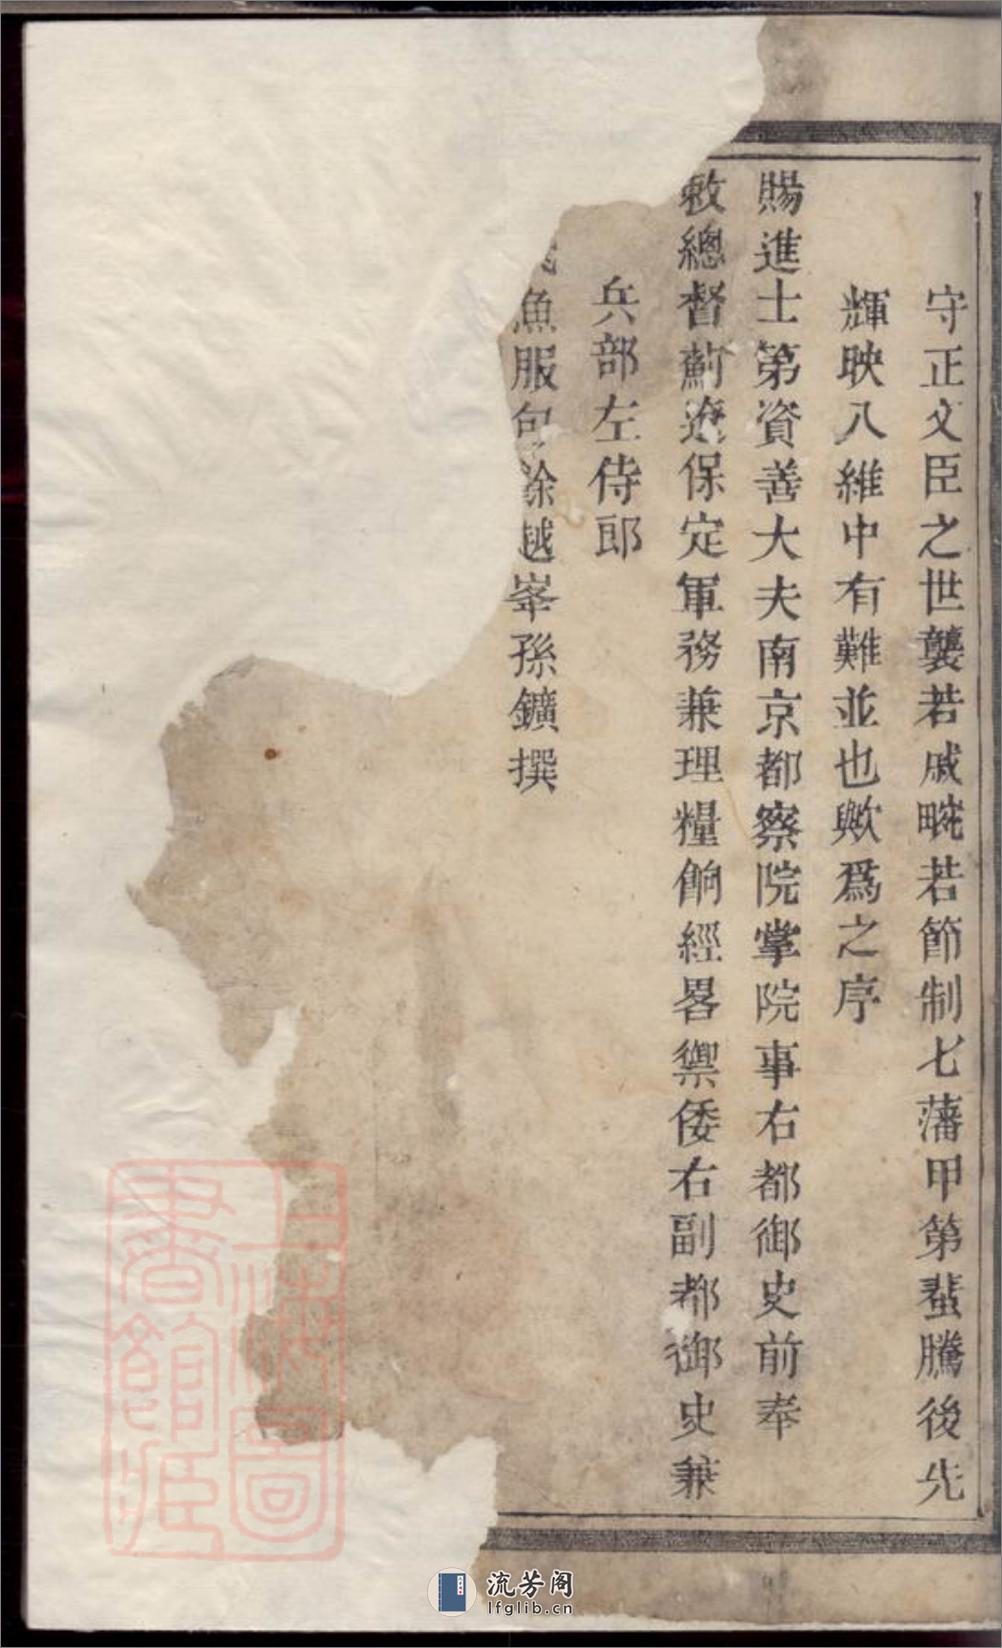 守正文臣之世襲若戚畹若節制七藩甲第蜚騰後先
輝映八維中有難並也歟爲之序
賜進士第資善大夫南京都察院掌院事右都御史前奉
敕總督薊遼保定軍務兼理糧餉經畧禦倭右副都御史兼
兵部左侍郎
魚服餘越峯孫鑛撰
上海圖
書館藏
流芳阁
lfglib.cn